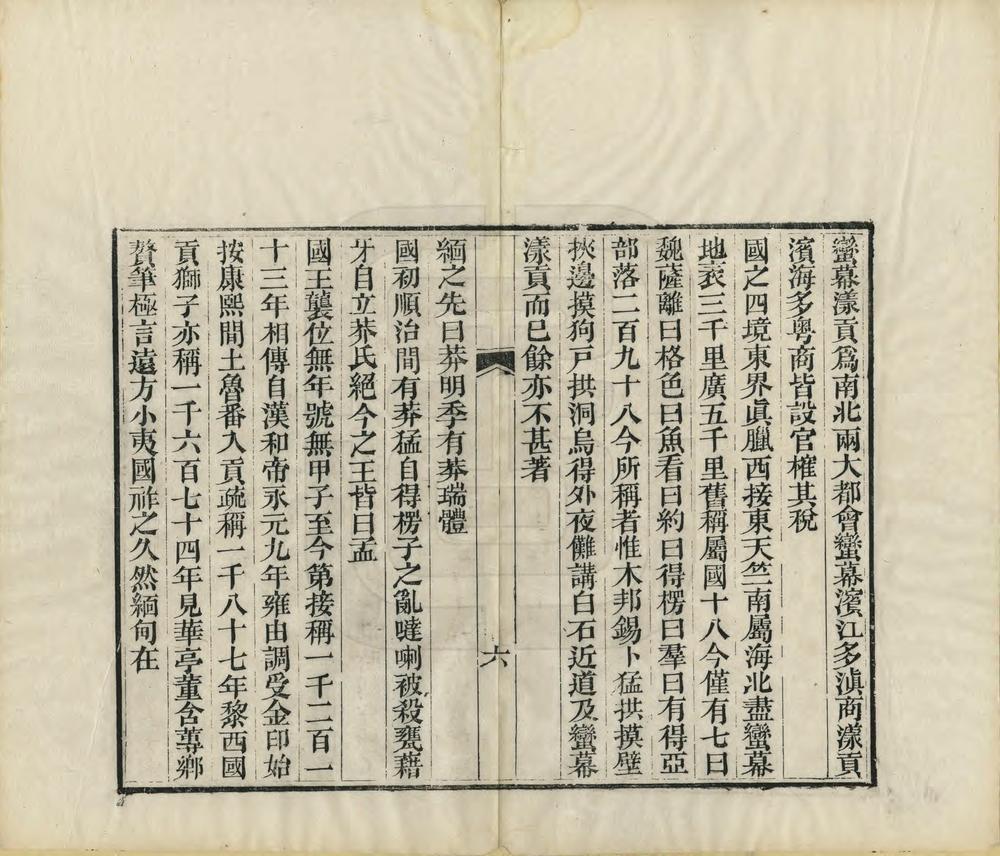 蠻幕漾貢爲南北兩大都會蠻幕濱江多滇商漾貢
濱海多粤商皆設官榷其稅
國之四境東界眞臘西接東天竺南屬海北盡蠻幕
地袤三千里廣五千里舊稱屬國十八今僅有七曰
魏薩離曰格色曰魚看曰約曰得楞曰羣曰有得亞
部落二百九十八今所稱者惟木邦錫卜猛拱摸壁
挾邊摸狗戸拱洞烏得外夜儺講白石近道及蠻幕
漾貢而已餘亦不甚著
六
緬之先曰莽明季有莽瑞體
國初順治間有莽猛自得楞子之亂噠喇被殺甕藉
牙自立莽氏絕今之王皆曰孟
國王襲位無年號無甲子至今第接稱一千二百一
十三年相傳自漢和帝永元九年雍由調受金印始
按康熙間土魯番入貢疏稱一千八十七年黎西國
貢獅子亦稱一千六百七十四年見華亭董含蓴鄉
贅筆極言遠方小夷國祚之久然緬甸在